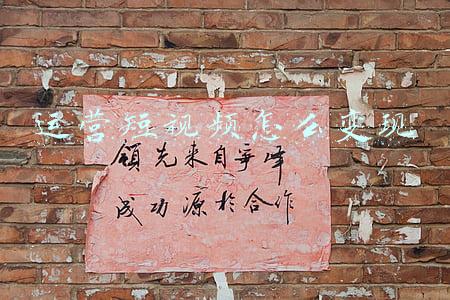 运营短视频怎么变现
领先来自争峰
成功源于合作